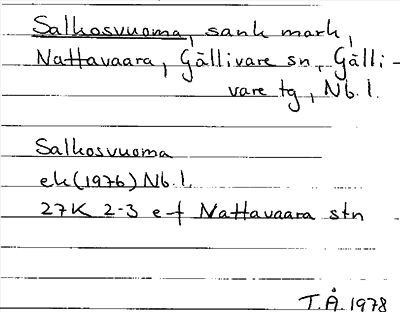 Salkosvuoma, sank mark,
Nattavaara, Gällivare sn, Gälli-
vare tg, Nb. l.
Salkosvuoma
ek (1976) Nb. l.
27K 2-3 e-f Nattavaara stn
T.Å. 1978